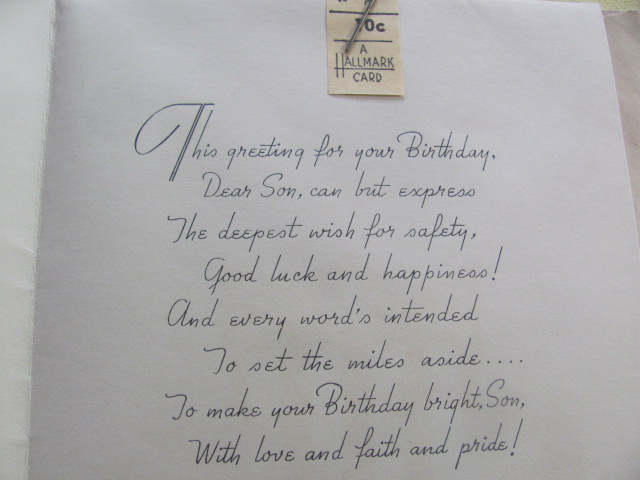 10c
A
HALLMARK
CARD
This greeting for your Birthday,
Dear Son, can but express
The deepest wish for safety,
Good luck and happiness!
And every word's intended
To set the miles aside....
To make your Birthday bright, Son,
With love and faith and pride!